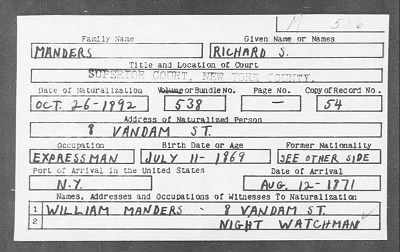 M 536
Family Name Given Name or Names
MANDERS RICHARD S.
Title and Location of Court
SUPERIOR COURT, NEW YORK COUNTY.
Date of Naturalization Volume or Bundle No. Page No. Copy of Record No.
OCT. 26-1892 538 — 54
Address of Naturalized Person
8 VANDAM ST.
Occupation Birth Date or Age Former Nationality
EXPRESSMAN JULY 11-1869 SEE OTHER SIDE
Port of Arrival in the United States Date of Arrival
N.Y. AUG. 12-1871
Names, Addresses and Occupations of Witnesses To Naturalization
1 WILLIAM MANDERS - 8 VANDAM ST.
2 NIGHT WATCHMAN